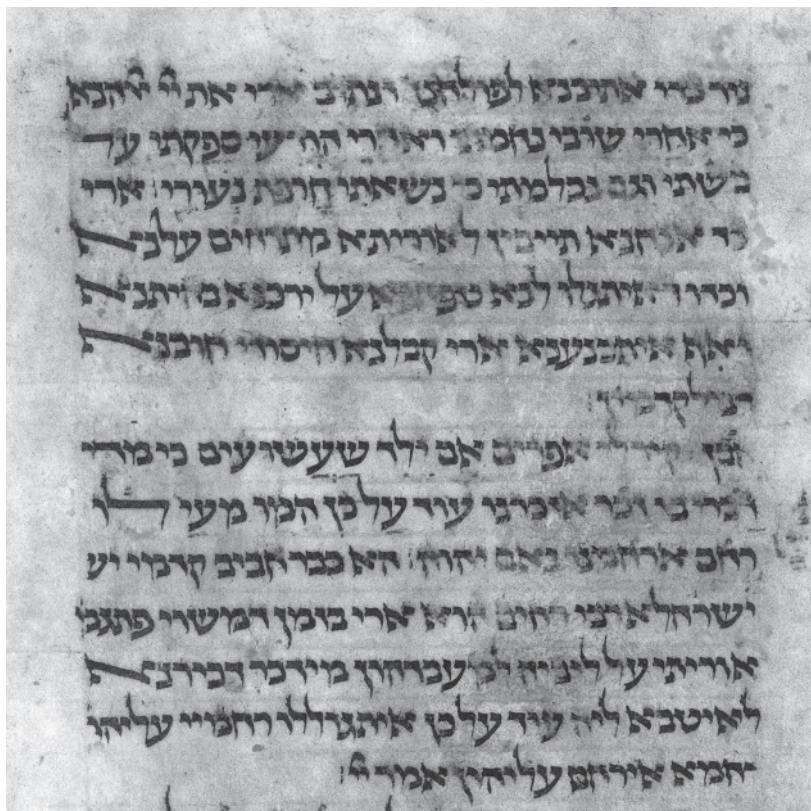 אתיבנא לפולחנך ונתוב ארי את יי
כי אחרי שובי נחמתי ואחרי הודעי ספקתי על
בשתי וגם נכלמתי כי נשאתי חרפת נעורי ארי
כד אנחנא תייבין לאוריתא מתרחים עלנא
וכדו דאיתגלי לנא על ירכנא בהיתנא
ואף איתכנענא ארי קבלנא חיסודי חובנא
דמילקדמין
הבן יקיר לי אפרים אם ילד שעשועים כי מדי
דברי בו זכר אזכרנו עוד על כן המו מעי לו
רחם ארחמנו נאם יהוה הא כבר חביב קדמי יש
ישראל רבי רחים הוא ארי בזמן דמשוי פתגמי
אוריתי על ליביה למעבדהון מידכר דכירנא
לאיטבא ליה עוד על כן איתגללו רחמיי עליהו
רחמא אירחם עליהון אמר יי